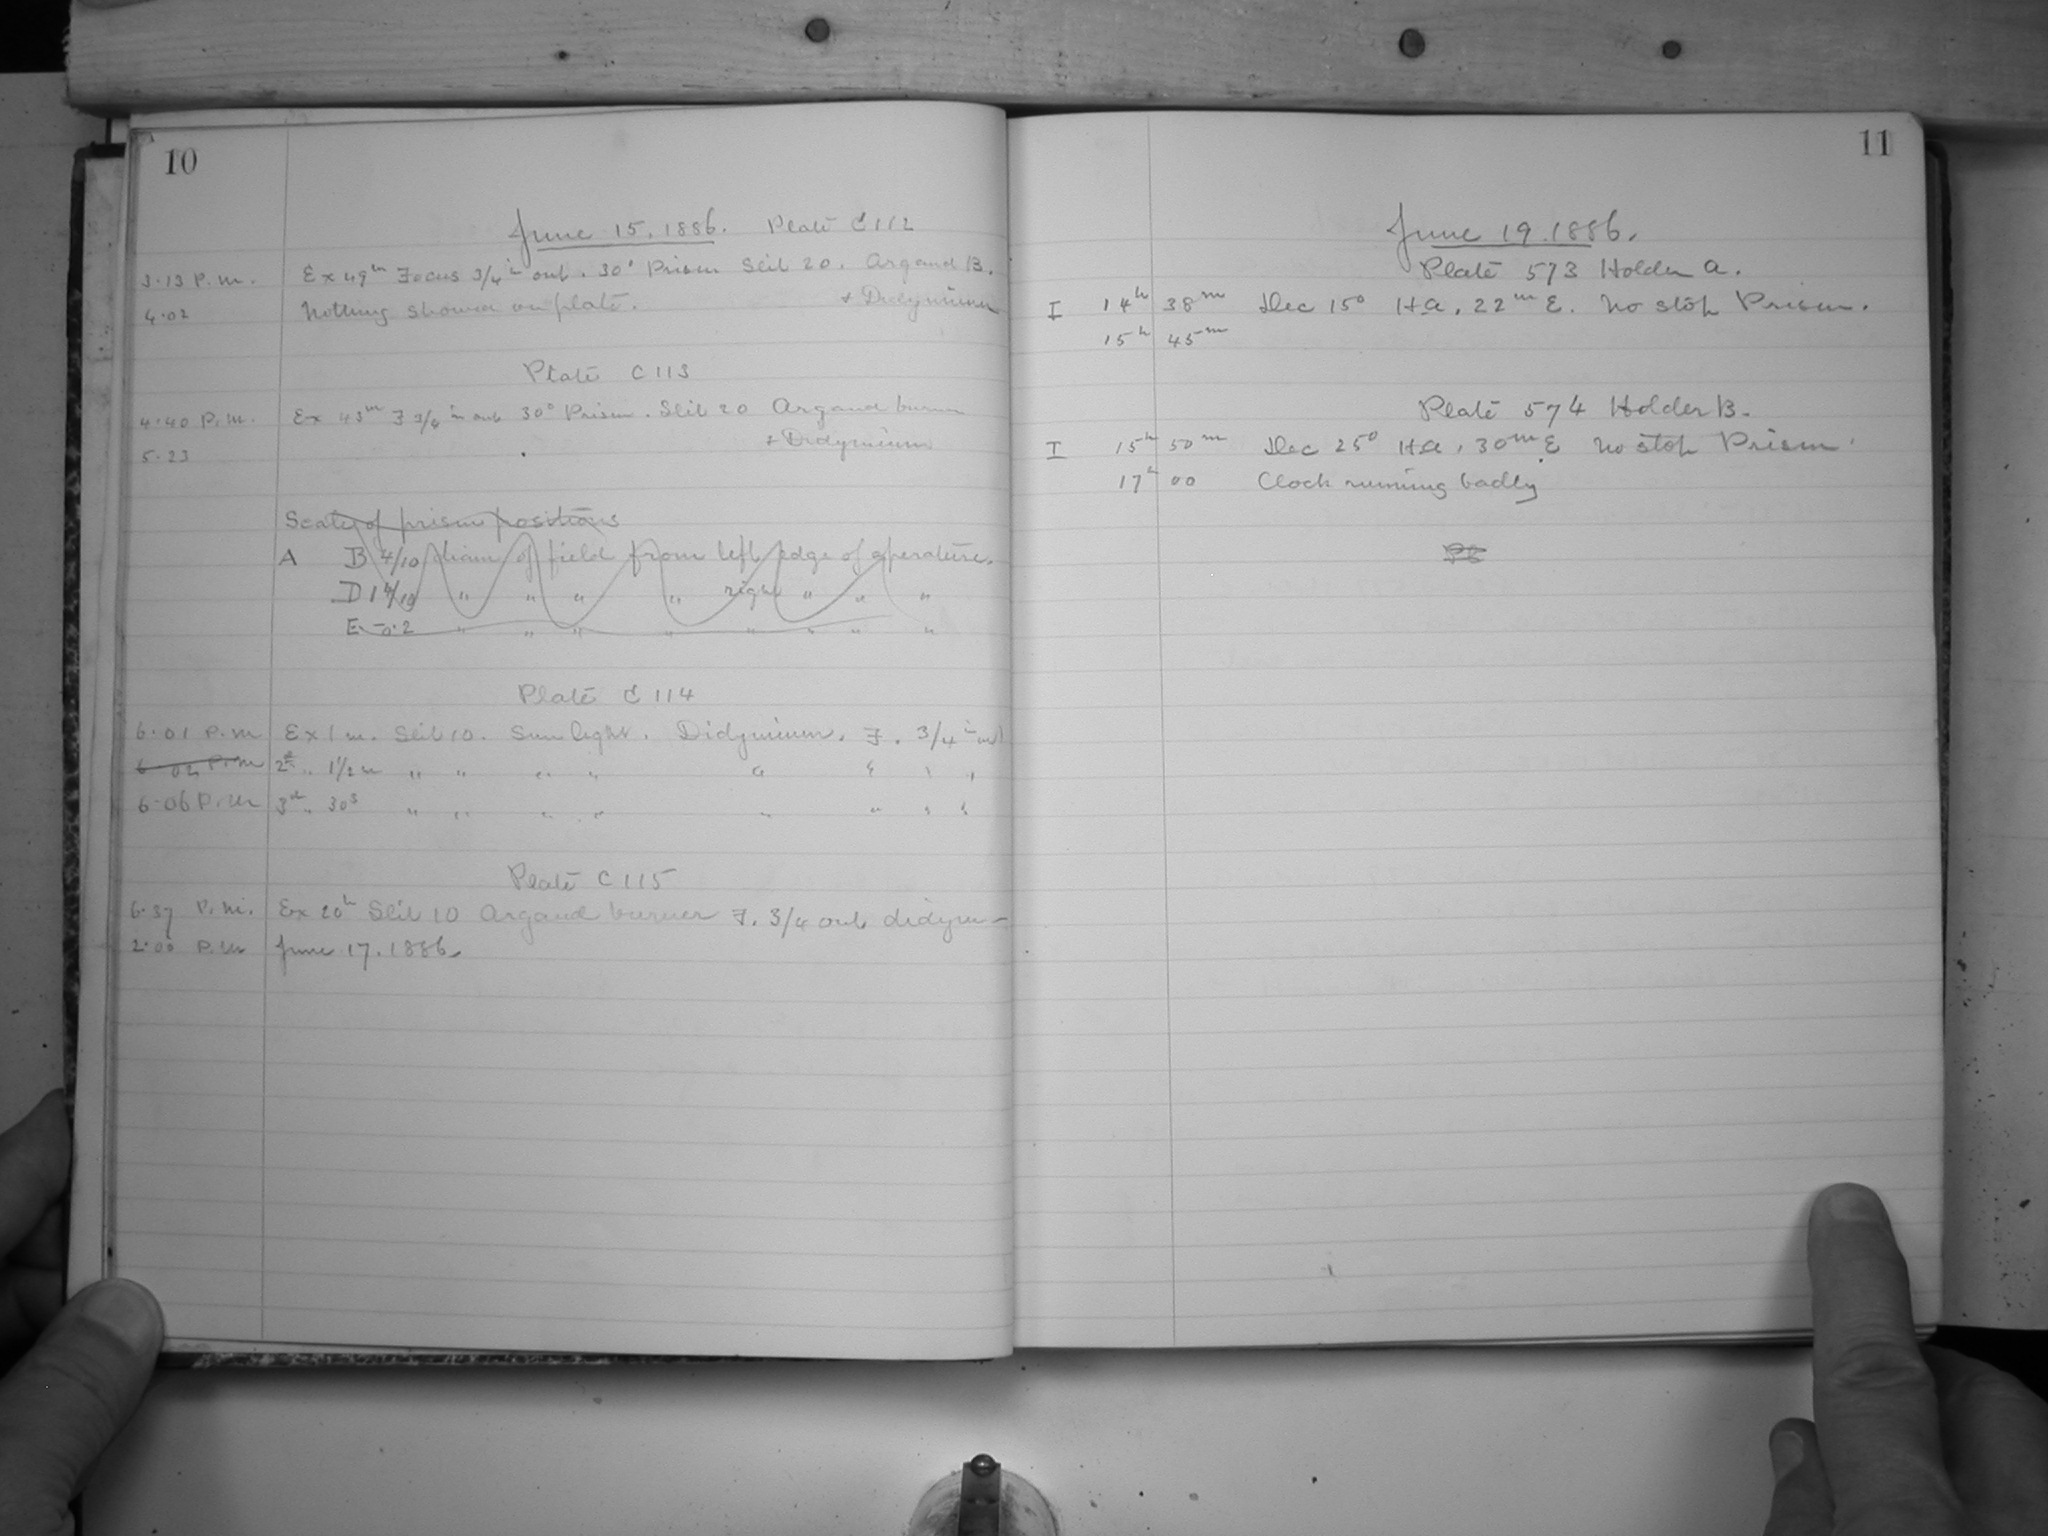 10
June 15. 1886. Plate C 112
3.13 P.m. Ex 49m Focus 3/4 in out. 30° Prism Slit 20. Argand B.
4.02 Nothing showed on plate. + Didymium
Plate C 113
4.40 P.M. Ex 43m F 3/4 in out 30° Prism. Slit 20 Argand burner
+ Didymium
5.23
Scale of prism positions
A B 4/10 diam of field from left edge of aperature.
D 1/10 " " " " right " " "
E -0.2 " " " " " " " "
Plate C 114
6.01 P.M Ex 1 m. Slit 10. Sun light. Didymium. F. 3/4 in out
6 02 P.M 2d " 1 1/2 m " " " " " " " "
6.06 P.M 3d " 30s " " " " " " " "
Plate C 115
6.37 P.M. Ex 20h Slit 10 Argand burner F. 3/4 out didym—
2.00 P.M June 17. 1886.
11
June 19. 1886.
Plate 573 Holder A.
I 14h 38m Dec 15° HA. 22m E. No stop Prism.
15h 45m
Plate 574 Holder B.
I 15h 50m Dec 25° HA. 30m E No stop Prism.
17h 00 Clock running badly